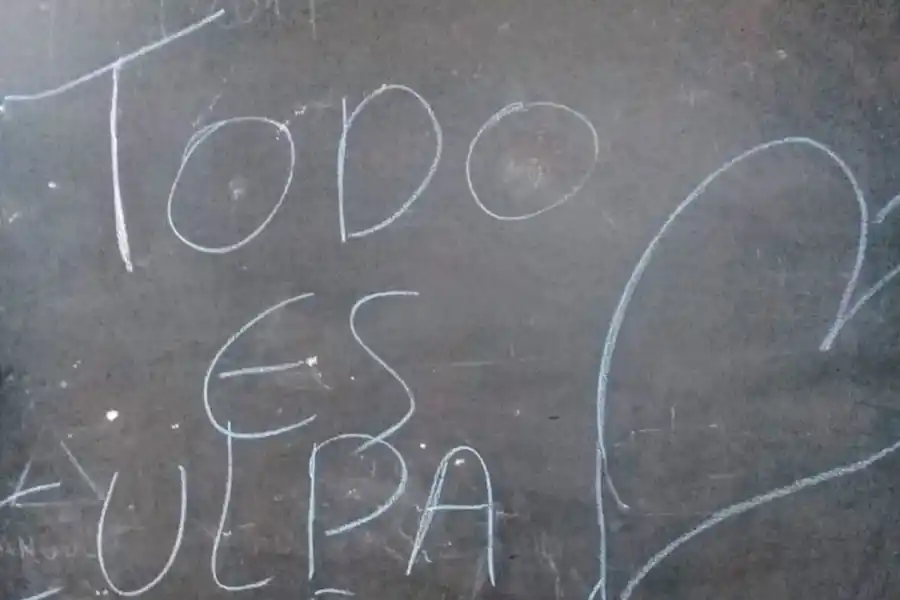 TODO
ES
ULPA